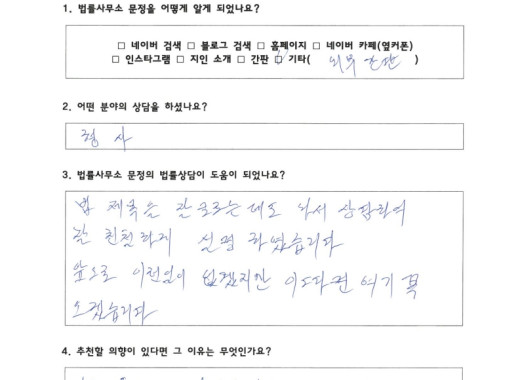 1. 법률사무소 문정을 어떻게 알게 되었나요?
□ 네이버 검색 □ 블로그 검색 □ 홈페이지 □ 네이버 카페(옆커폰)
□ 인스타그램 □ 지인 소개 □ 간판 □ 기타( 외부 간판 )
2. 어떤 분야의 상담을 하셨나요?
형 사
3. 법률사무소 문정의 법률상담이 도움이 되었나요?
법 제목을 잘 모르는데도 상담하여
잘 친절하게 설명 하였습니다
앞으로 이런일이 없겠지만 있다면 여기 꼭
오겠습니다
4. 추천할 의향이 있다면 그 이유는 무엇인가요?